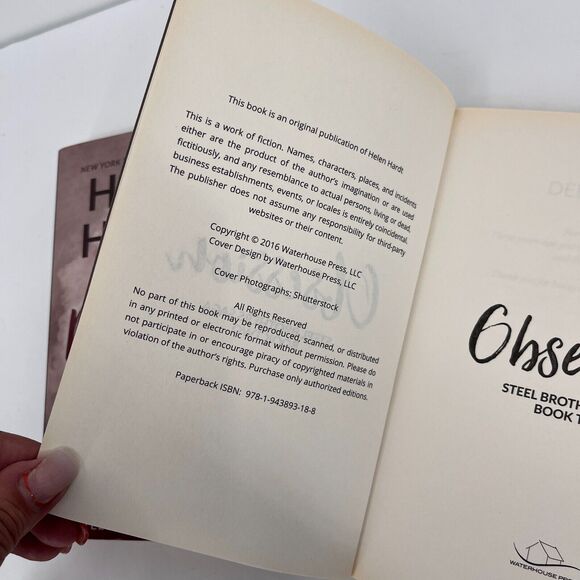 This book is an original publication of Helen Hardt
This is a work of fiction. Names, characters, places, and incidents
either are the product of the author's imagination or are used
fictitiously, and any resemblance to actual persons, living or dead,
business establishments, events, or locales is entirely coincidental.
The publisher does not assume any responsibility for third-party
websites or their content.
Copyright © 2016 Waterhouse Press, LLC
Cover Design by Waterhouse Press, LLC
Cover Photographs: Shutterstock
All Rights Reserved
No part of this book may be reproduced, scanned, or distributed
in any printed or electronic format without permission. Please do
not participate in or encourage piracy of copyrighted materials in
violation of the author's rights. Purchase only authorized editions.
Paperback ISBN: 978-1-943893-18-8
Obse
STEEL BROTH
BOOK T
WATERHOUSE PRE
NEW YORK
H
H